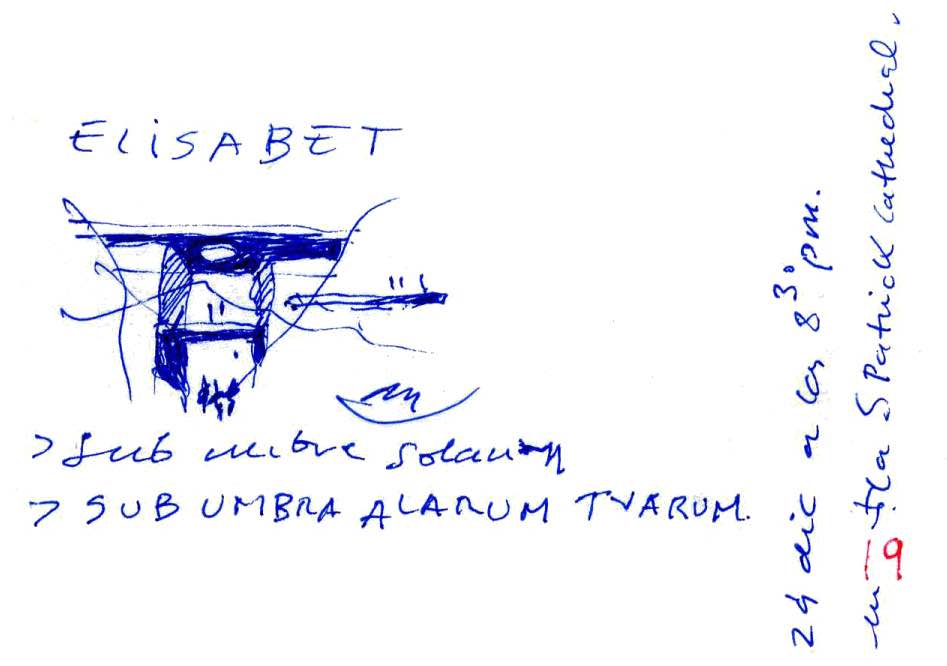 ELISABET
> Sub umbre solarum
> SUB UMBRA ALARUM TVARUM.
24 dic a las 8³⁰ pm.
en la S Patrick Cathedral.
19